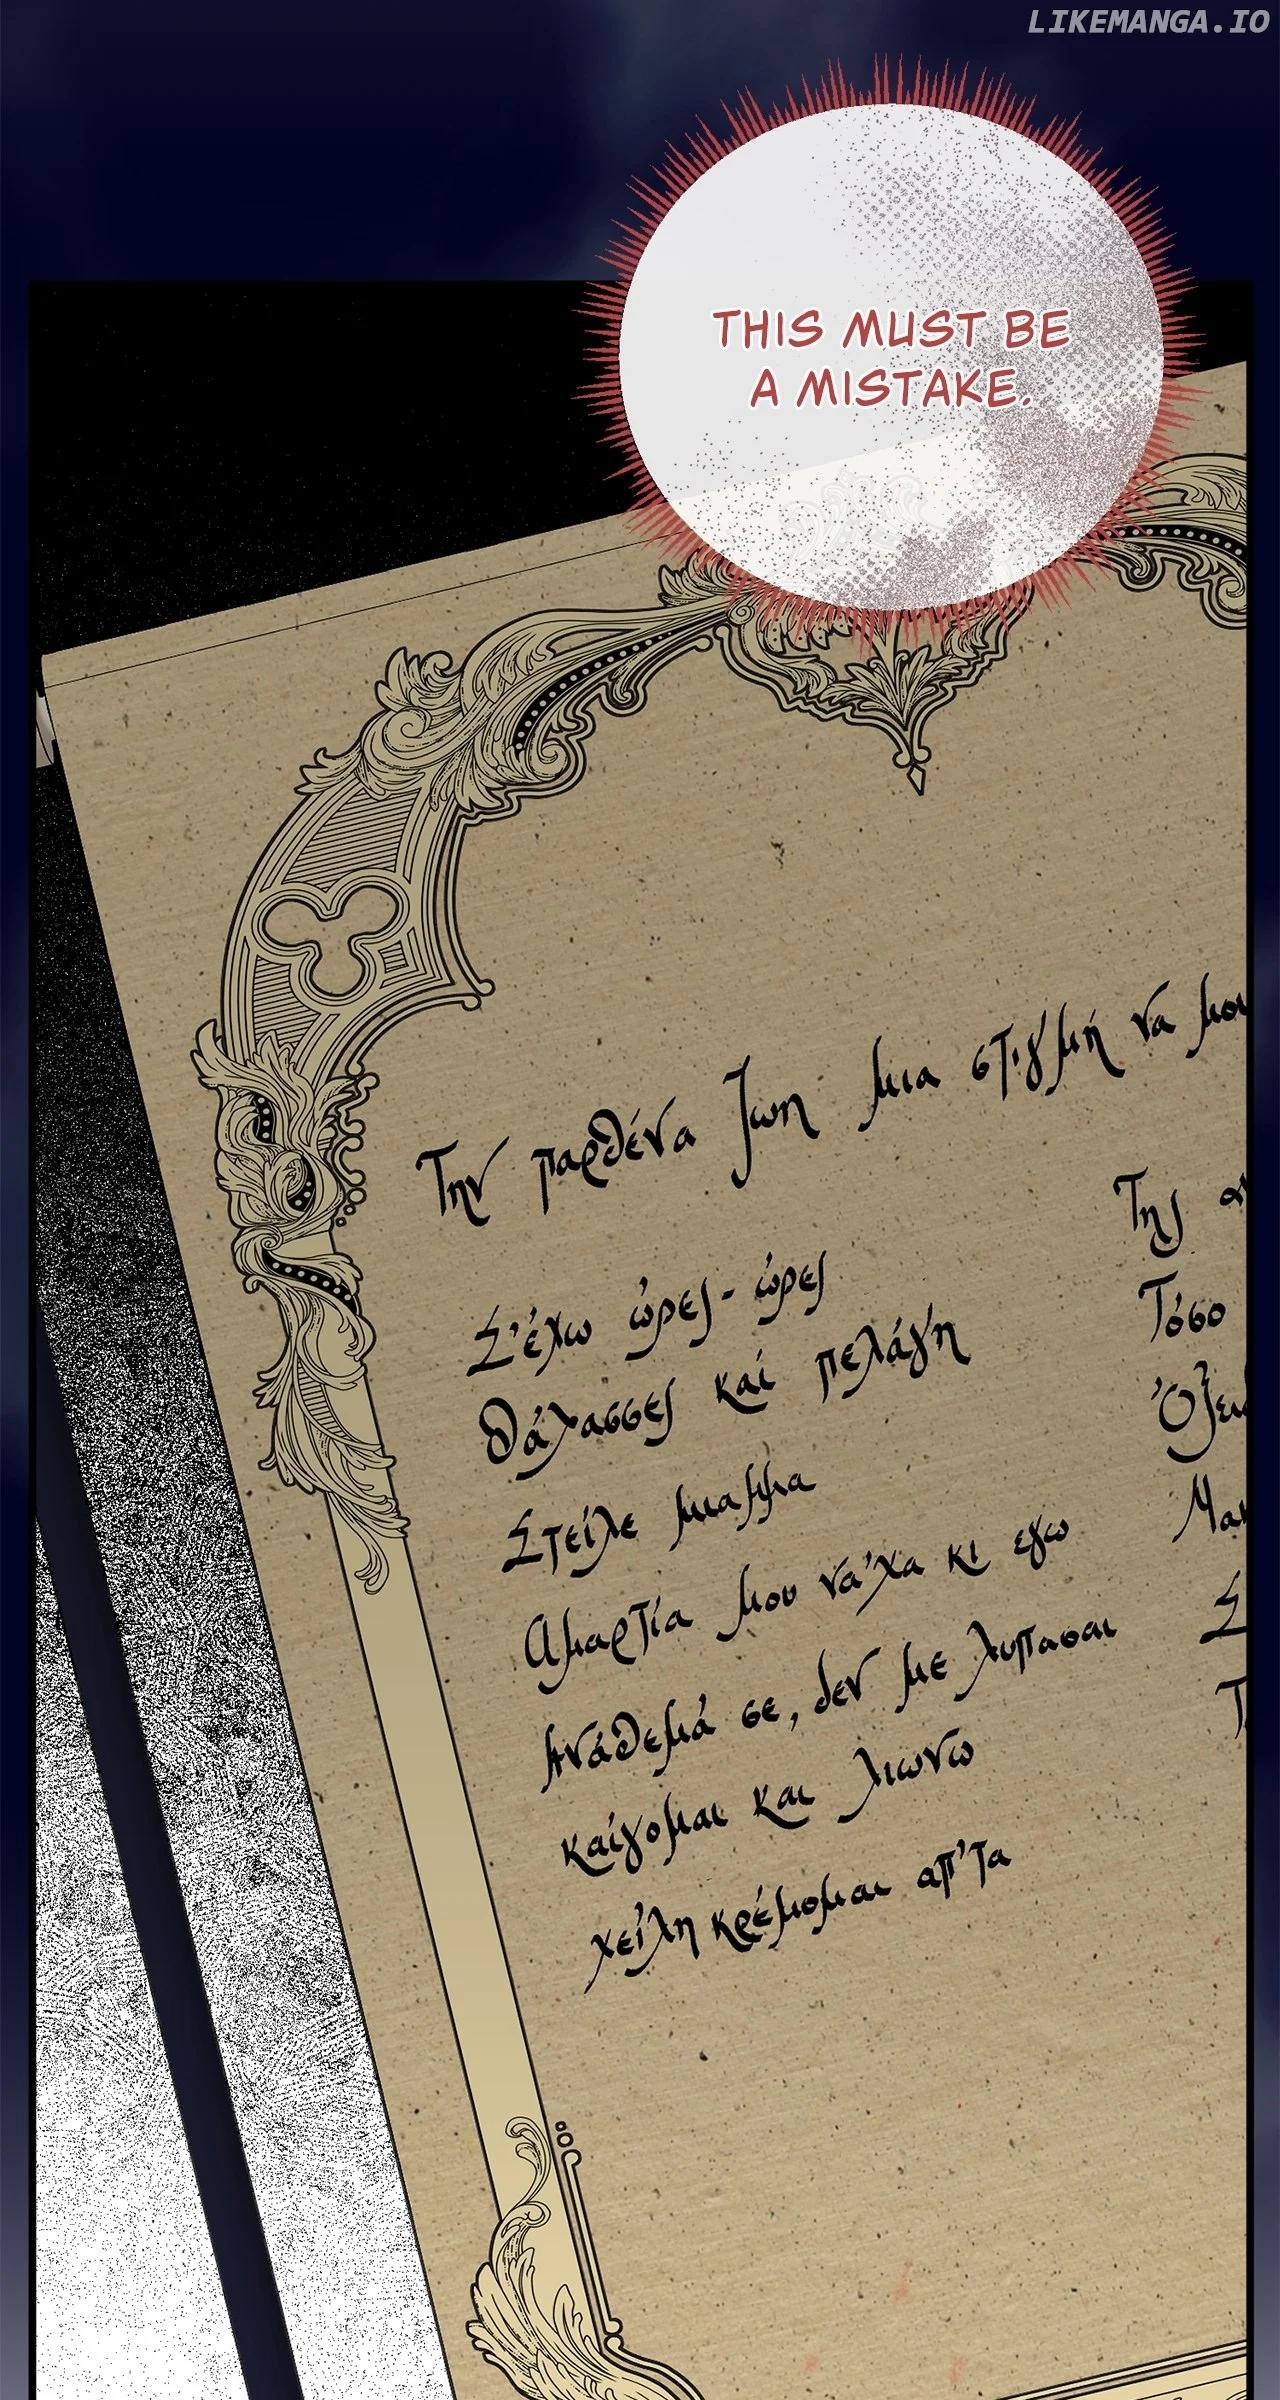 LIKEMANGA.IO
THIS MUST BE
A MISTAKE.
Την παρθένα ζωη μια στιγμή να μου
Σ'έχω ώρες-ώρες
θάλασσες καί πελάγη
Στείλε μια
Αμαρτία μου νά'χα κι εγω
Ανάθεμά σε, δεν με λυπασαι
καίγομαι και λιωνω
χείλη κρέμομαι απ'τα
Της
Τόσο